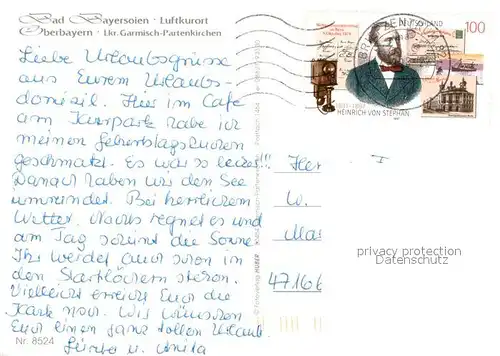 Bad Bayersoien · Luftkurort
Oberbayern · Lkr. Garmisch-Partenkirchen
Liebe Urlaubsgrüsse
aus Eurem Urlaubs-
domizil. Hier im Cafe
am Kurpark habe ich
meinen Geburtstagskuchen
geschmatzt. Es war so lecker!!!
Danach haben wir den See
umrundet. Bei herrlichem
Wetter. Nachts regnet es und
am Tag scheint die Sonne
Ihr werdet auch schon in
den Startlöchern stehen.
Vielleicht erreicht Euch die
Karte noch. Wir wünschen
Euch einen ganz tollen Urlaub.
u. Anita
Nr. 8524
DEUTSCHLAND
100
1831-1897
HEINRICH VON STEPHAN
HUBER
Her
W.
Mar
47166
privacy protection
Datenschutz